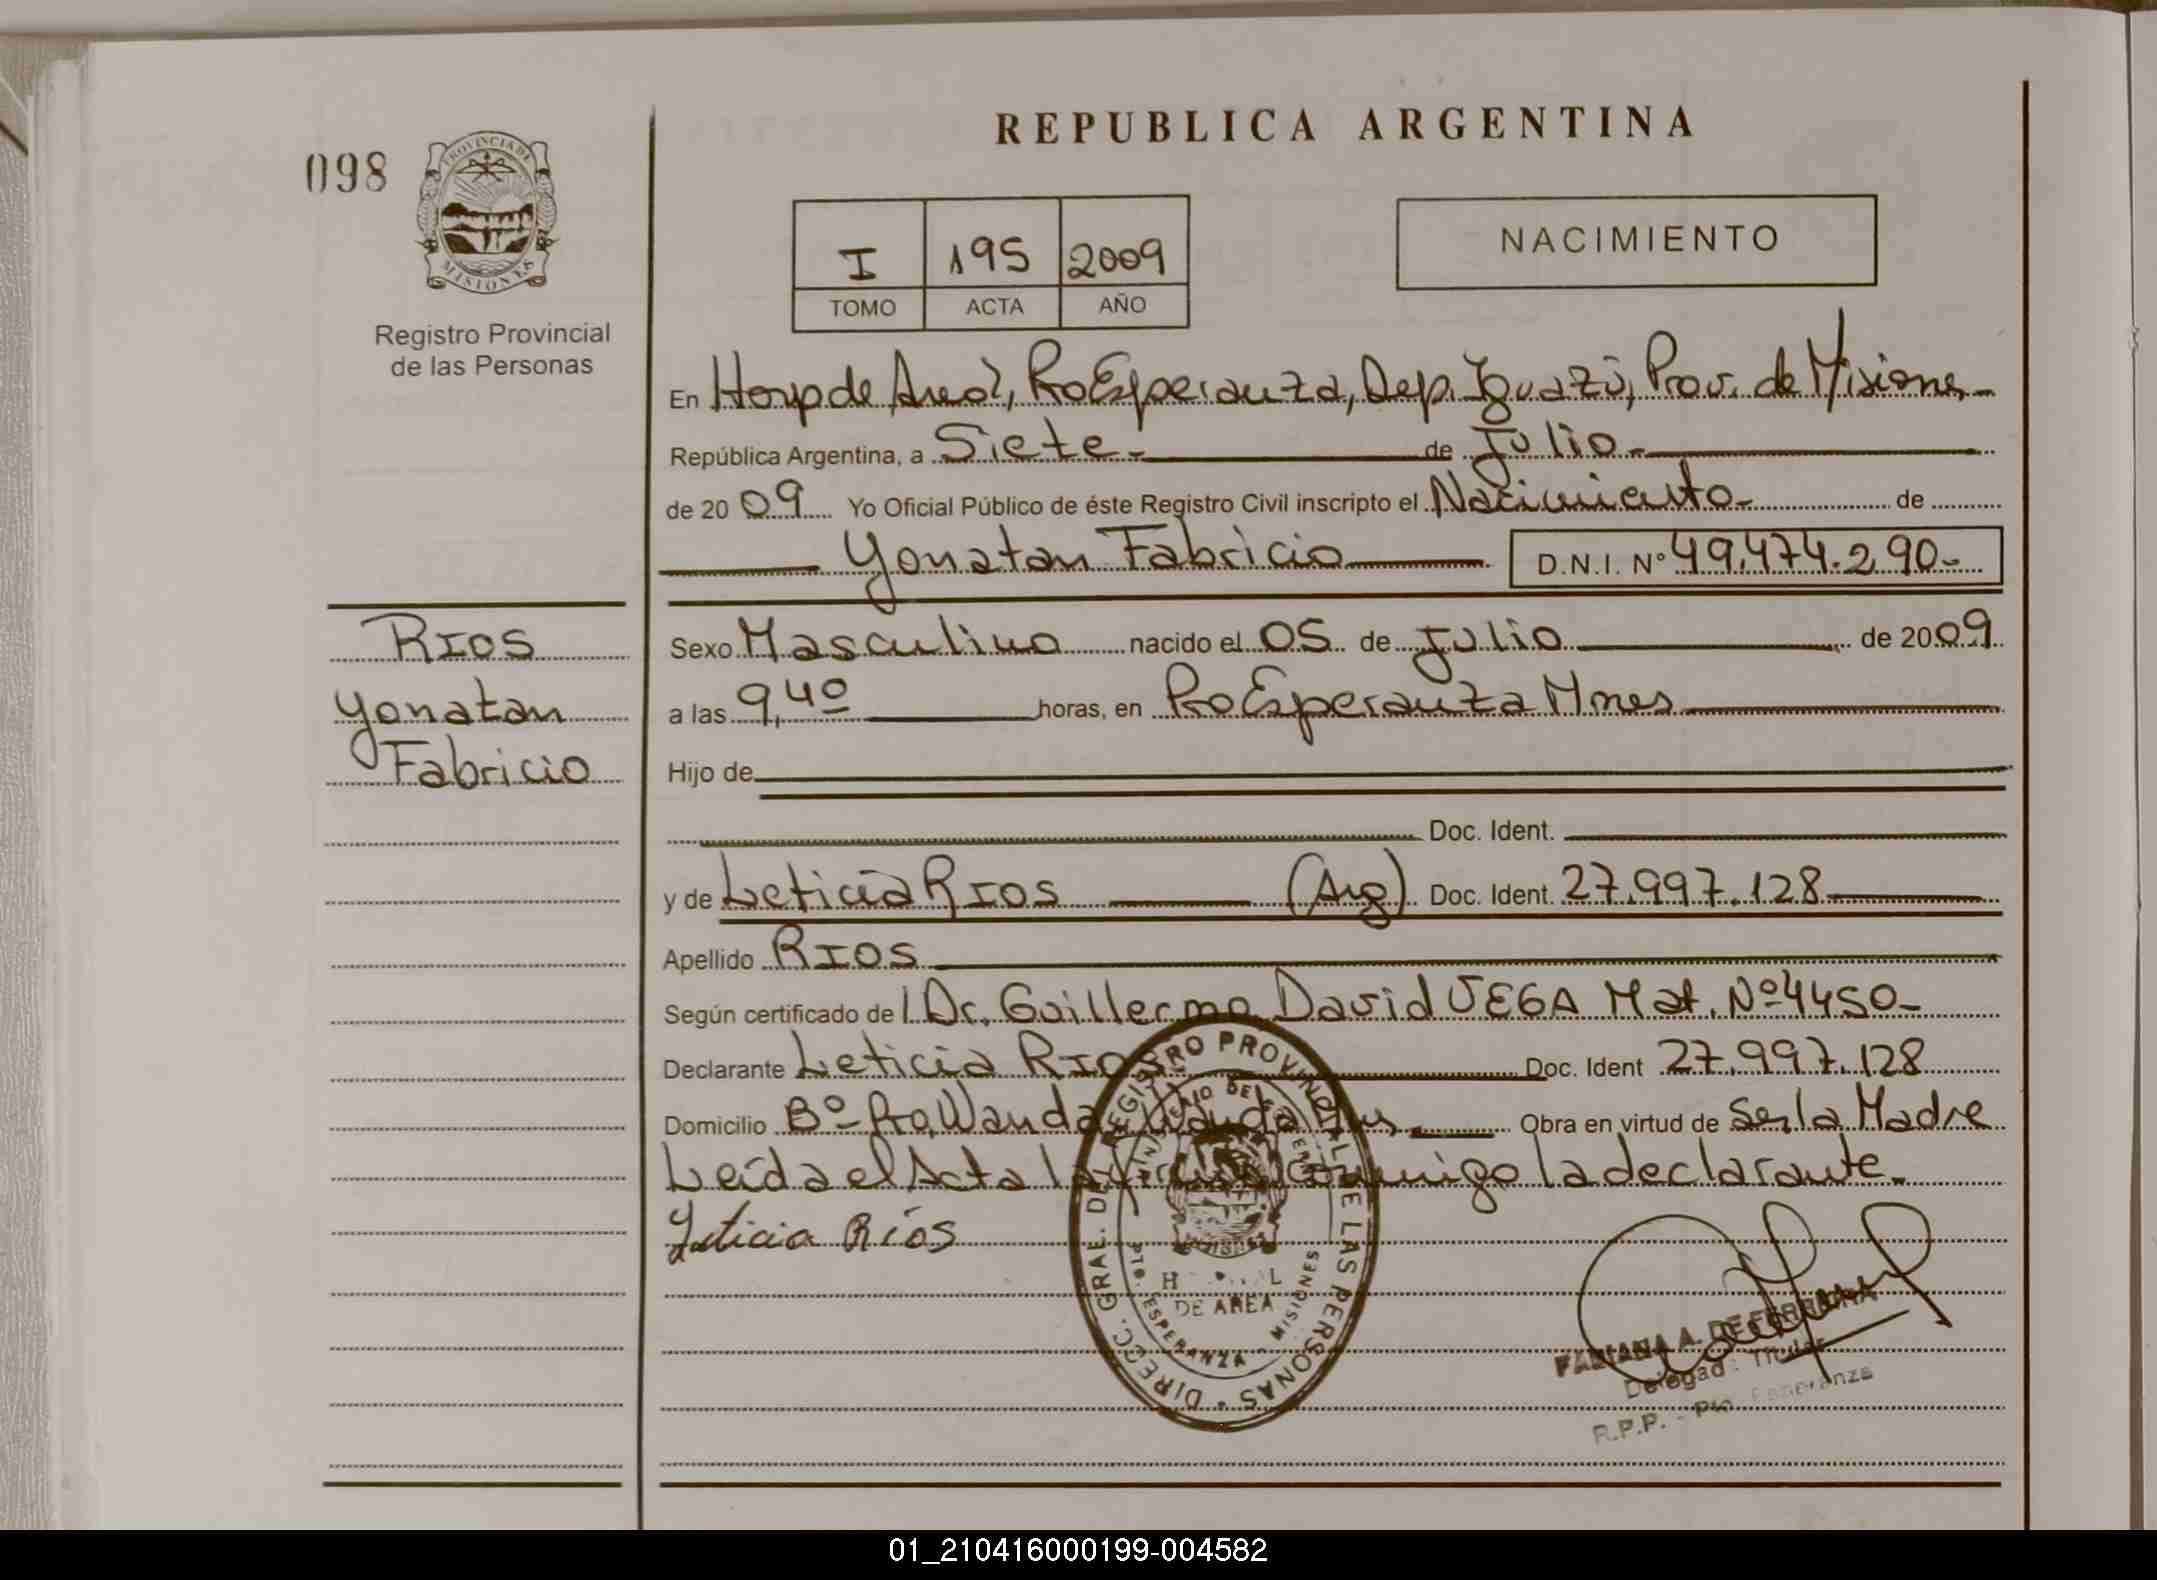 REPUBLICA ARGENTINA
098
PROVINCIA DE
MISIONES
Registro Provincial
de las Personas
I 195 2009
TOMO ACTA AÑO
NACIMIENTO
En Hosp de Area, Pto Esperanza, Dep. Iguazú, Prov. de Misiones.-
República Argentina, a Siete.- de Julio.-
de 2009 Yo Oficial Público de éste Registro Civil inscripto el Nacimiento- de
Yonatan Fabricio D.N.I. Nº 49.474.290.-
RIOS
Yonatan
Fabricio
Sexo Masculino nacido el 05 de Julio de 2009
a las 9,40 horas, en Pto Esperanza Mnes
Hijo de
Doc. Ident.
y de Leticia RIOS (Arg) Doc. Ident. 27.997.128
Apellido RIOS
Según certificado de l Dr. Guillermo David VEGA Mat. Nº 4450-
Declarante Leticia RIOS Doc. Ident 27.997.128
Domicilio Bº Pto Wanda Wanda Obra en virtud de Ser la Madre
Leída el Acta la firma conmigo la declarante.
Leticia Ríos
DIRECC. GRAL. DEL REGISTRO PROVINCIAL DE LAS PERSONAS
MINISTERIO DE GOBIERNO
DE AREA
PTO. ESPERANZA - MISIONES
FABIANA A. DE FERREIRA
Delegada Titular
R.P.P. - Pto. Esperanza
01_210416000199-004582